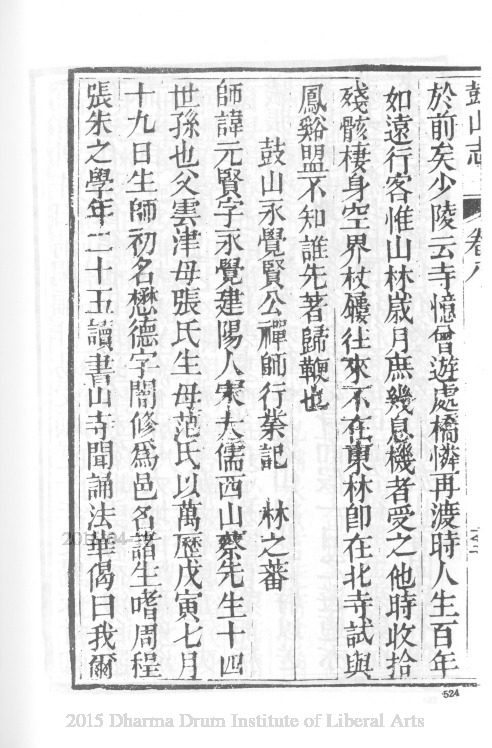 鼓山志 卷八
於前矣少陵云寺憶曾遊處橋憐再渡時人生百年
如遠行客惟山林歲月庶幾息機者受之他時收拾
殘骸棲身空界杖屨往來不在東林卽在北寺試與
鳳谿盟不知誰先著歸鞭也
鼓山永覺賢公禪師行業記 林之蕃
師諱元賢字永覺建陽人宋大儒西山蔡先生十四
世孫也父雲津母張氏生母范氏以萬歷戊寅七月
十九日生師初名懋德字闇修爲邑名諸生嗜周程
張朱之學年二十五讀書山寺聞誦法華偈曰我爾
524
2015 Dharma Drum Institute of Liberal Arts